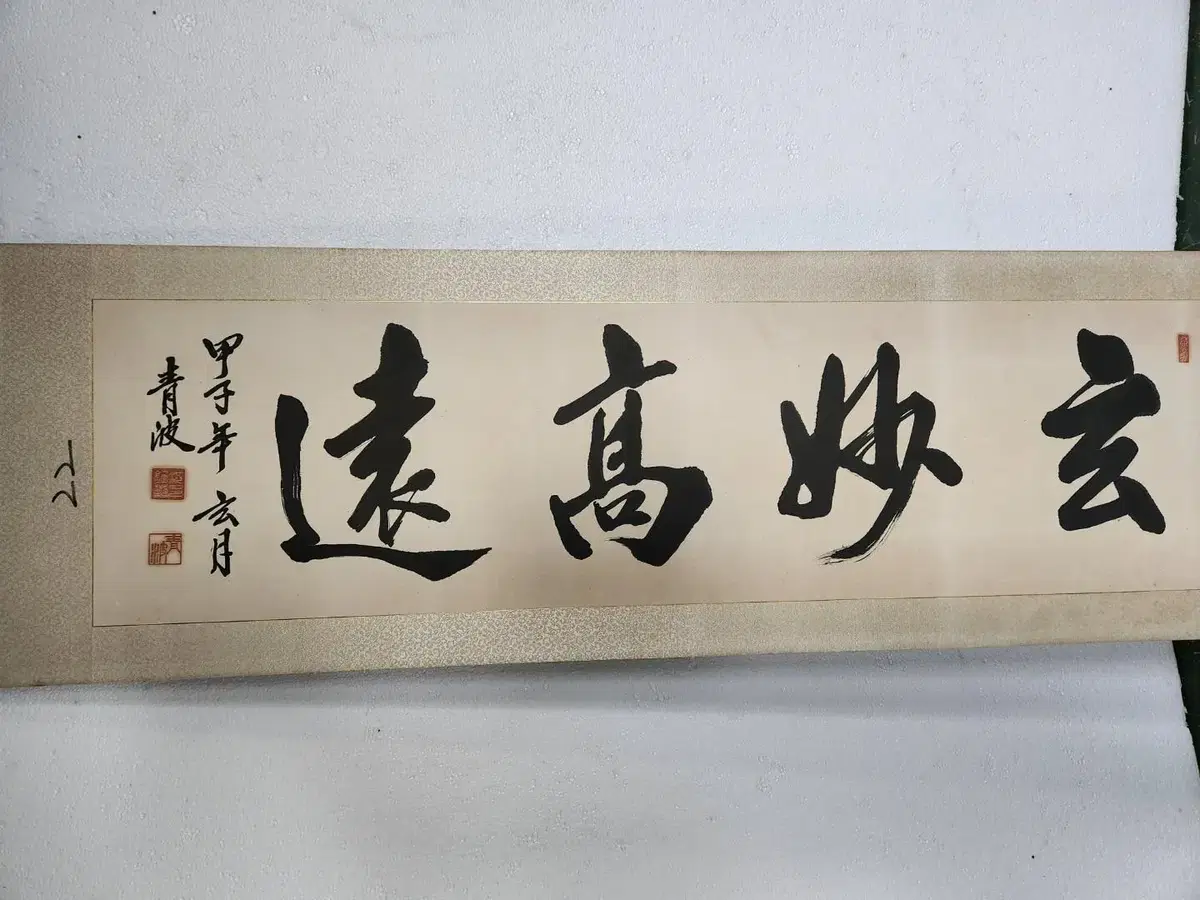 玄妙高遠
甲子年 玄月
青波
22